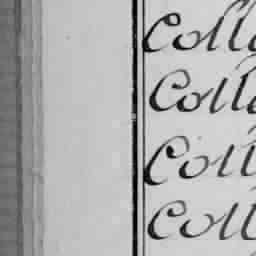 Coll
Coll
Coll
Coll